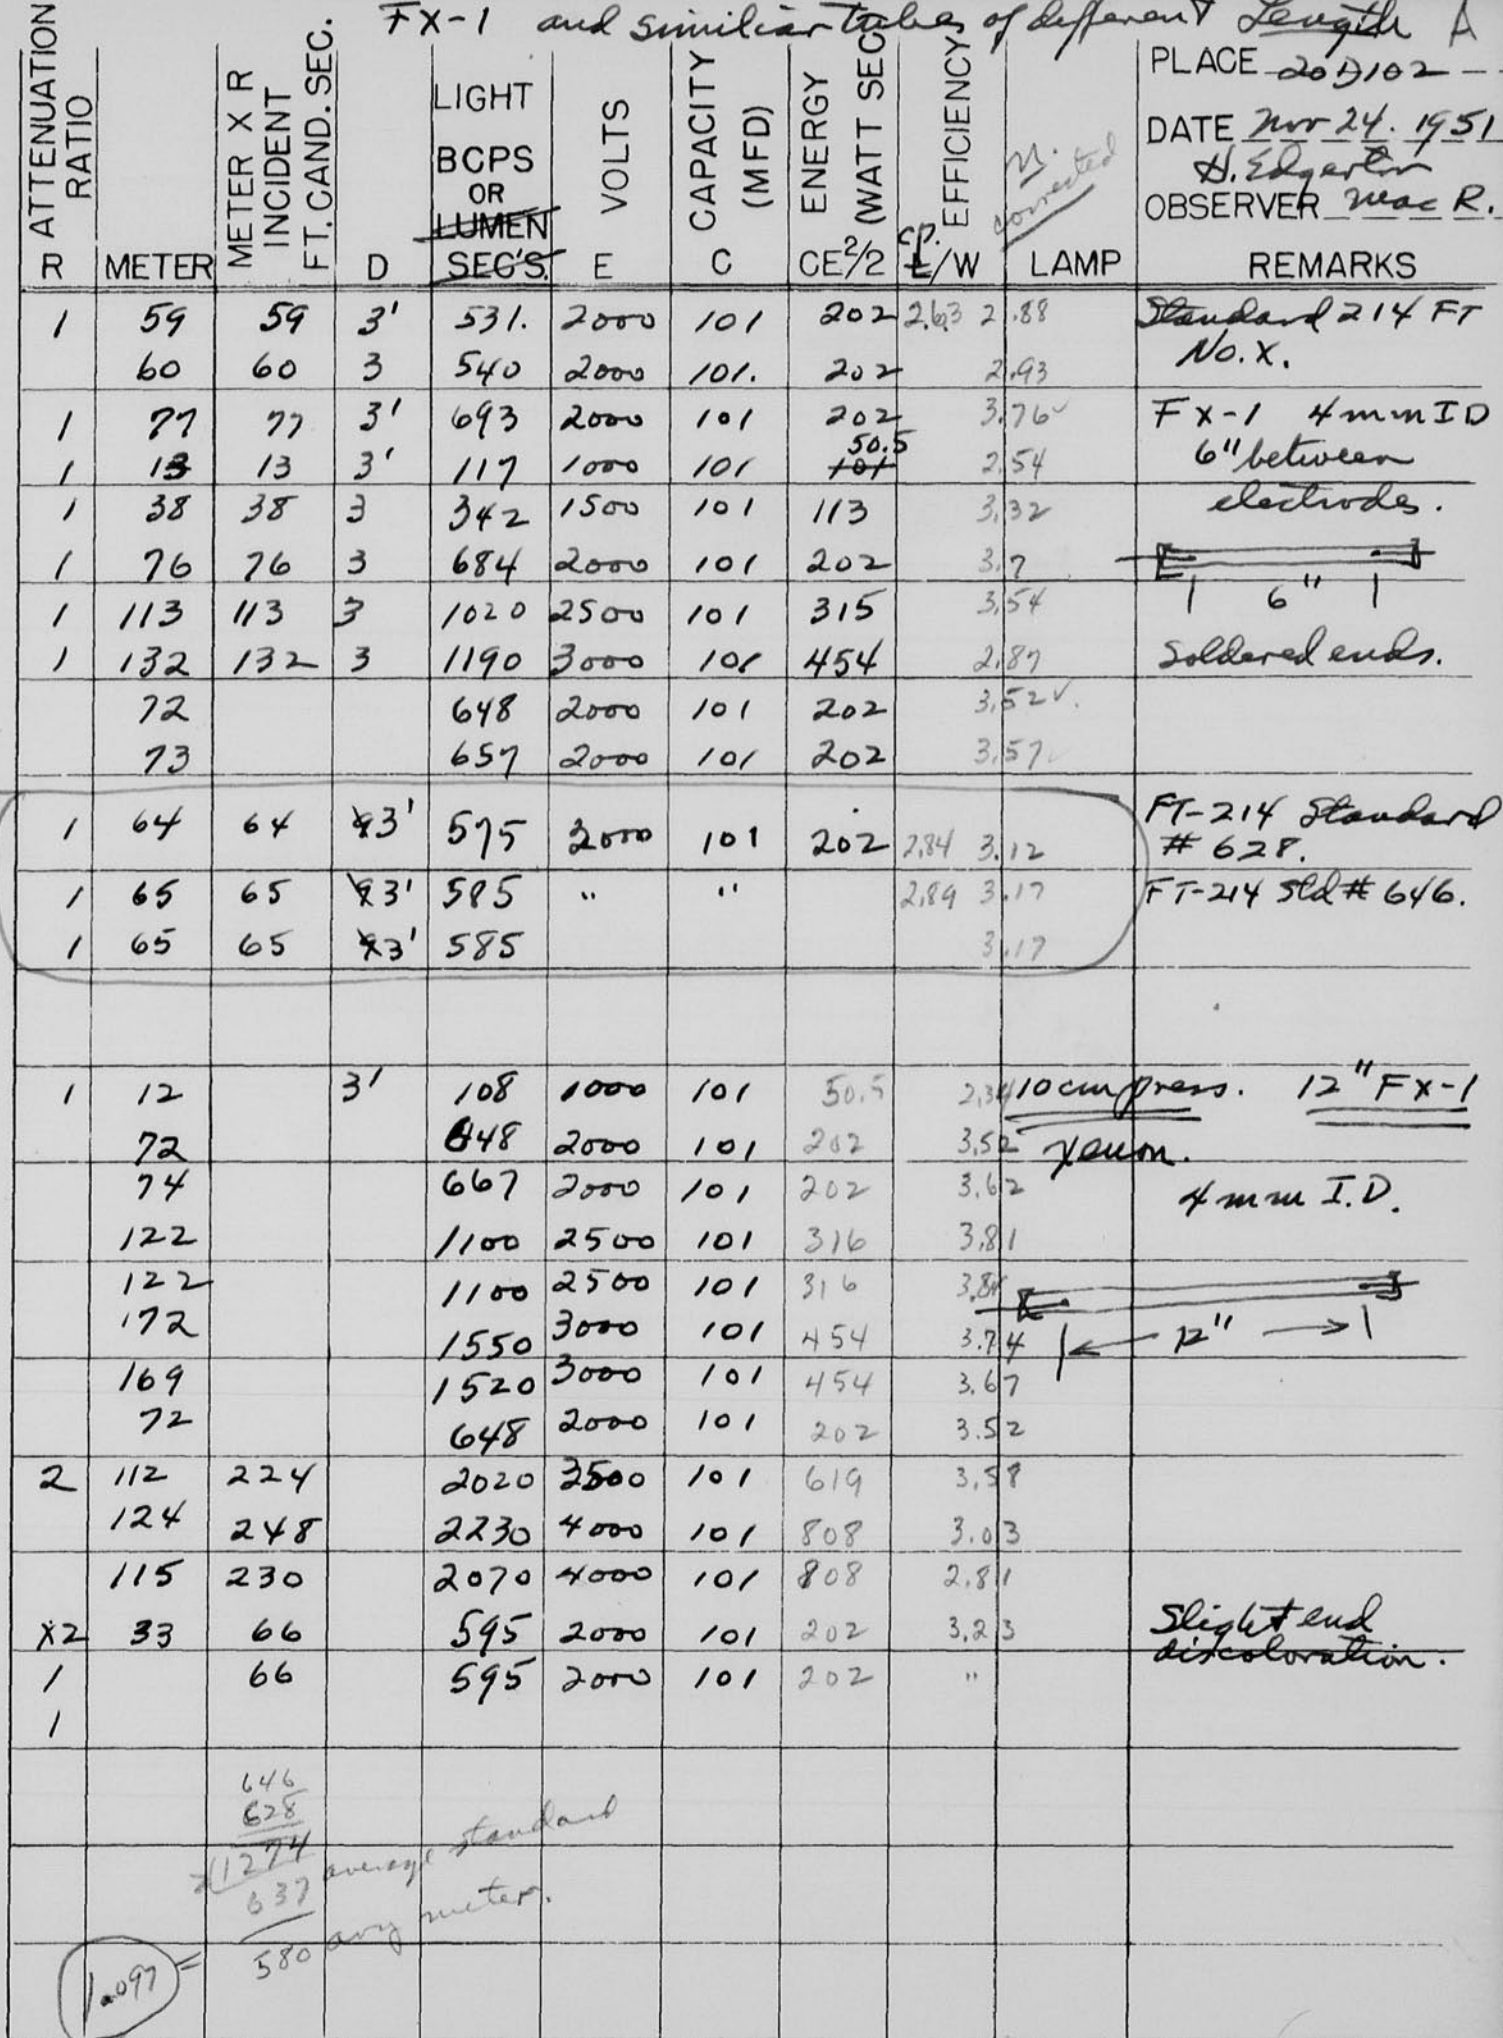 FX-1 and similiar tubes of different Length A
ATTENUATION RATIO R
METER
METER X R INCIDENT FT. CAND. SEC.
D
LIGHT BCPS OR LUMEN SEC'S.
VOLTS E
CAPACITY (MFD) C
ENERGY (WATT SEC) CE²/2
EFFICIENCY cp. L/W
corrected
LAMP
PLACE 20D102
DATE Nov 24. 1951
H. Edgerton
OBSERVER Mac R.
REMARKS
1 59 59 3' 531. 2000 101 202 2.63 2.88 Standard 214 FT
No. X.
60 60 3 540 2000 101. 202 2.93
1 77 77 3' 693 2000 101 202 3.76✓ FX-1 4mm ID
1 13 13 3' 117 1000 101 101 50.5 2.54 6" between
1 38 38 3 342 1500 101 113 3.32 electrodes.
1 76 76 3 684 2000 101 202 3.7
6"
1 113 113 3 1020 2500 101 315 3.54
1 132 132 3 1190 3000 101 454 2.87 Soldered ends.
72 648 2000 101 202 3.52✓.
73 657 2000 101 202 3.57✓
1 64 64 3' 575 2000 101 202 2.84 3.12 FT-214 Standard
# 628.
1 65 65 3' 585 " " 2.89 3.17 FT-214 Std # 646.
1 65 65 3' 585 3.17
1 12 3' 108 1000 101 50.5 2.34 10 cm press. 12" FX-1
72 648 2000 101 202 3.52 xenon.
74 667 2000 101 202 3.62 4 mm I.D.
122 1100 2500 101 316 3.81
122 1100 2500 101 316 3.81
172 1550 3000 101 454 3.74 12"
169 1520 3000 101 454 3.67
72 648 2000 101 202 3.52
2 112 224 2020 3500 101 619 3.58
124 248 2230 4000 101 808 3.03
115 230 2070 4000 101 808 2.81
X2 33 66 595 2000 101 202 3.23 Slight end
discoloration.
1 66 595 2000 101 202 "
1
646
628
2/1274
637 average standard
580 avg meter.
1.097 =